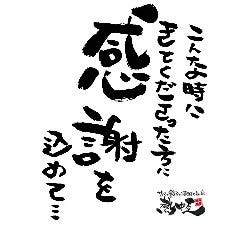 こんな時に
きてくださった方に
感謝を
込めて…